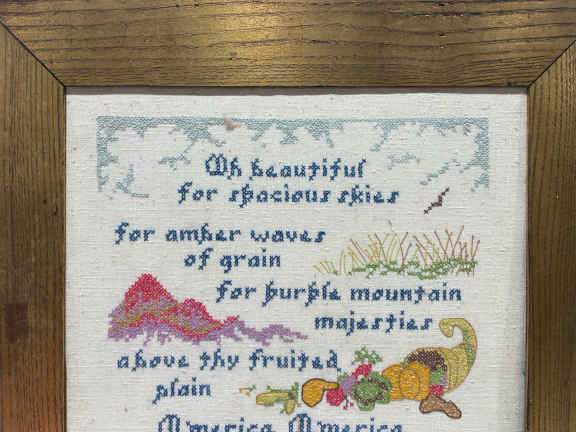 Oh beautiful
for spacious skies
for amber waves
of grain
for purple mountain
majesties
above thy fruited
plain
America, America